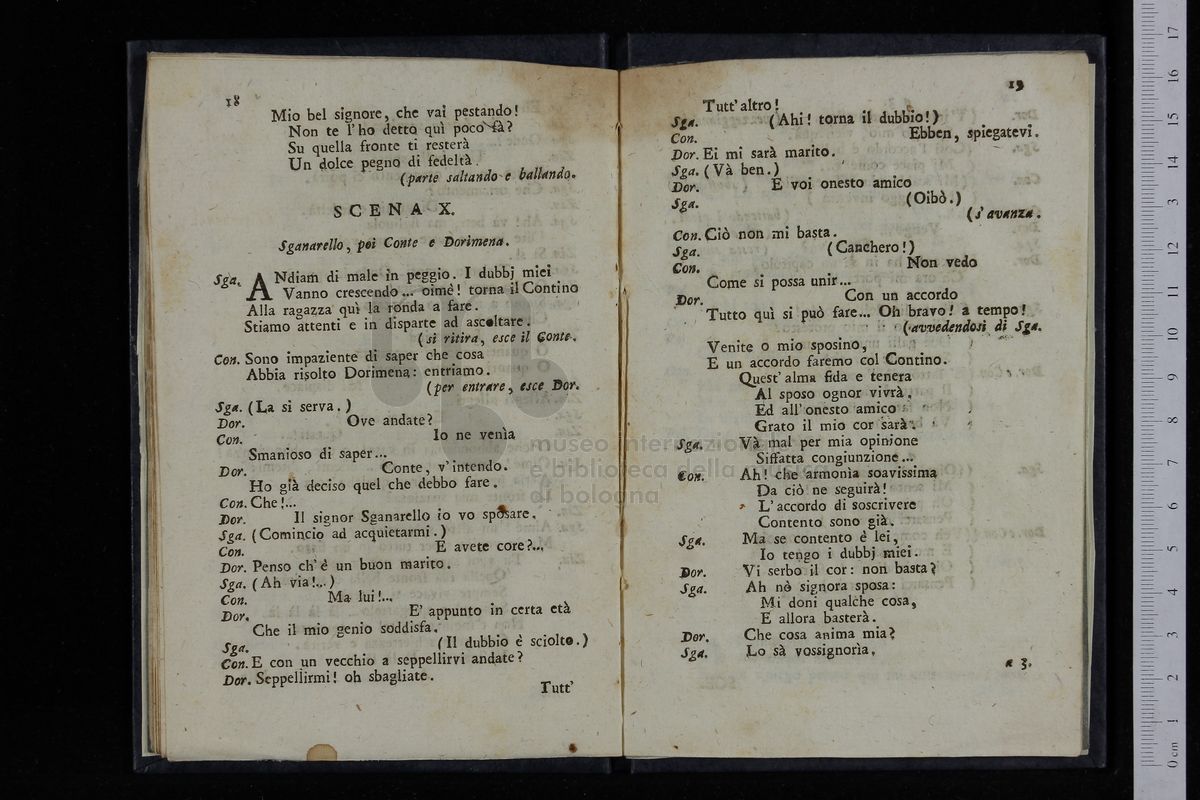 18
Mio bel signore, che vai pestando!
Non te l'ho detto quì poco fà?
Su quella fronte ti resterà
Un dolce pegno di fedeltà.
(parte saltando e ballando.
SCENA X.
Sganarello, poi Conte e Dorimena.
Sga. ANdiam di male in peggio. I dubbj miei
Vanno crescendo... oimè! torna il Contino
Alla ragazza quì la ronda a fare.
Stiamo attenti e in disparte ad ascoltare.
(si ritira, esce il Conte.
Con. Sono impaziente di saper che cosa
Abbia risolto Dorimena: entriamo.
(per entrare, esce Dor.
Sga. (La si serva.)
Dor. Ove andate?
Con. Io ne venìa
Smanioso di saper...
Dor. Conte, v'intendo.
Ho già deciso quel che debbo fare.
Con. Che!...
Dor. Il signor Sganarello io vo sposare.
Sga. (Comincio ad acquietarmi.)
Con. E avete core?...
Dor. Penso ch'è un buon marito.
Sga. (Ah via!...)
Con. Ma lui!...
Dor. E' appunto in certa età
Che il mio genio soddisfa.
Sga. (Il dubbio è sciolto.)
Con. E con un vecchio a seppellirvi andate?
Dor. Seppellirmi! oh sbagliate.
Tutt'
19
Tutt'altro!
Sga. (Ahi! torna il dubbio!)
Con. Ebben, spiegatevi.
Dor. Ei mi sarà marito.
Sga. (Và ben.)
Dor. E voi onesto amico
Sga. (Oibò.)
(s'avanza.
Con. Ciò non mi basta.
Sga. (Canchero!)
Con. Non vedo
Come si possa unir...
Dor. Con un accordo
Tutto quì si può fare... Oh bravo! a tempo!
(avvedendosi di Sga.
Venite o mio sposino,
E un accordo faremo col Contino.
Quest'alma fida e tenera
Al sposo ognor vivrà,
Ed all'onesto amico
Grato il mio cor sarà.
Sga. Và mal per mia opinione
Siffatta congiunzione...
Con. Ah! che armonìa soavissima
Da ciò ne seguirà!
L'accordo di soscrivere
Contento sono già.
Sga. Ma se contento è lei,
Io tengo i dubbj miei.
Dor. Vi serbo il cor: non basta?
Sga. Ah nò signora sposa:
Mi doni qualche cosa,
E allora basterà.
Dor. Che cosa anima mia?
Sga. Lo sà vossignorìa,
a 3.
museo internazionale
e biblioteca della musica
di bologna
0 cm 1 2 3 4 5 6 7 8 9 10 11 12 13 14 15 16 17